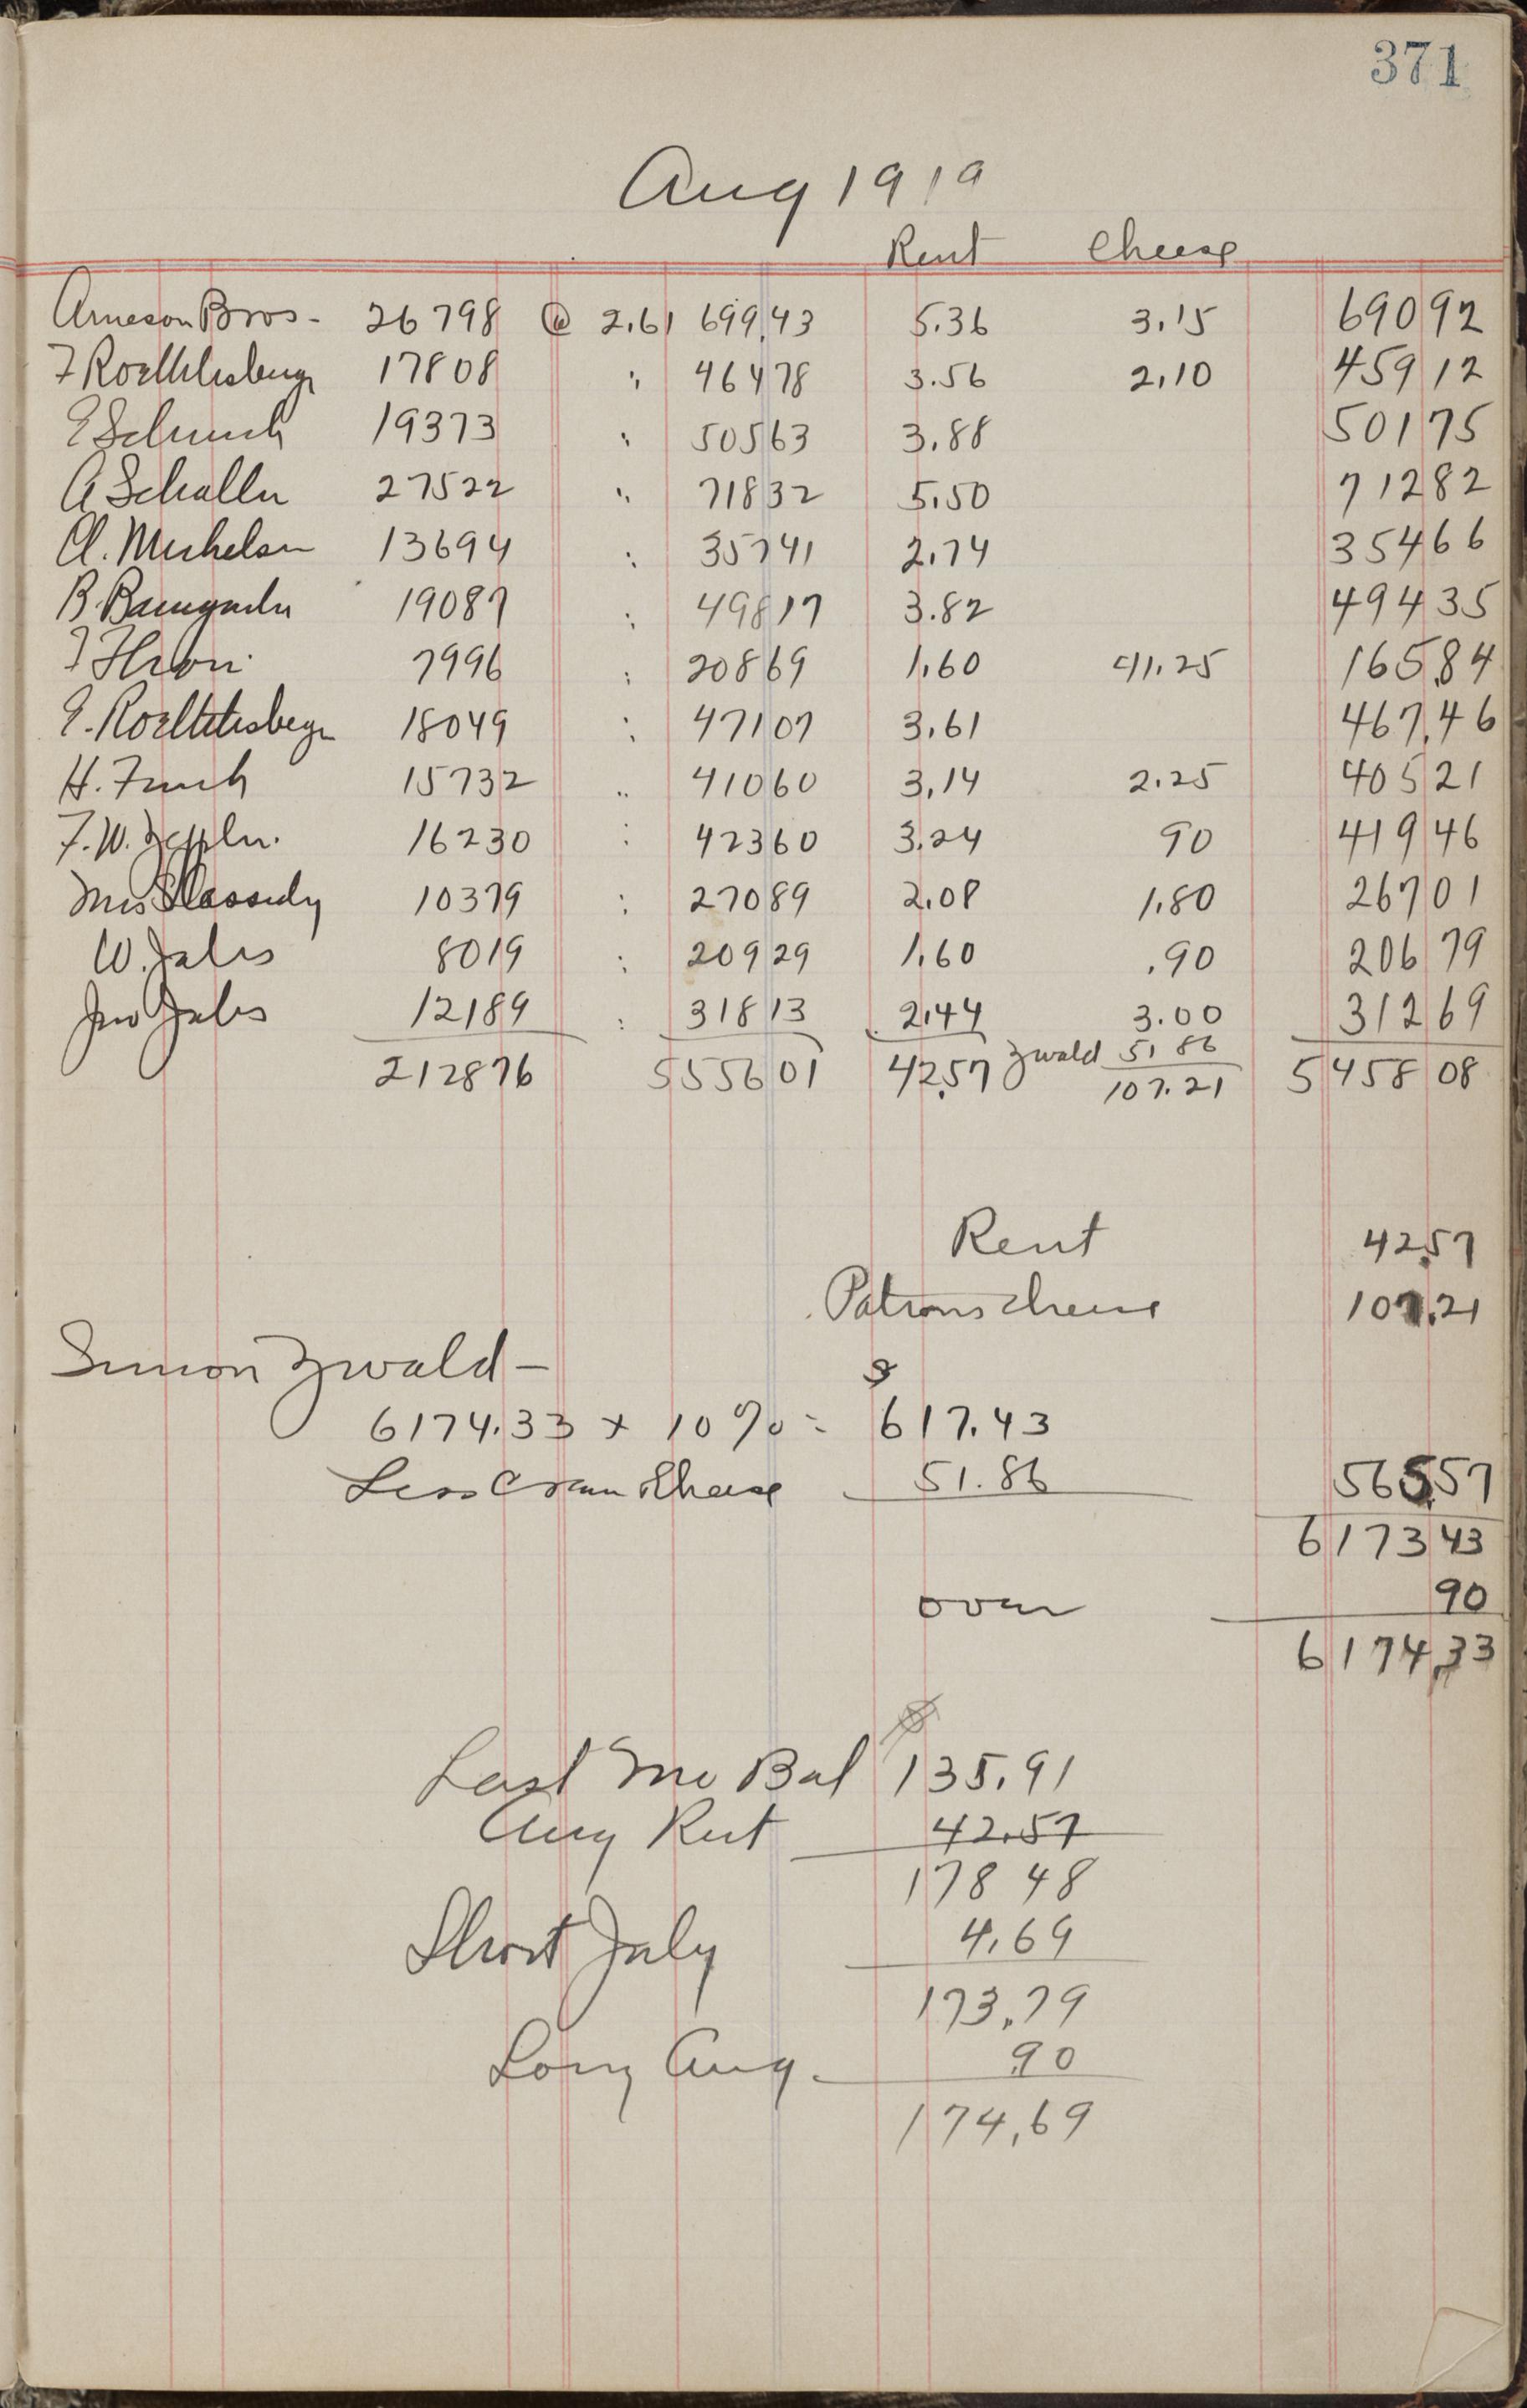 371
Aug 1919
Rent Cheese
Arneson Bros - 26798 @ 2.61 699.43 5.36 3.15 690 92
F Roethlisberger 17808 " 464 78 3.56 2.10 459 12
E Schmich 19373 " 505 63 3.88 501 75
A Schaller 27522 " 718 32 5.50 712 82
Cl. Michelson 13694 " 357 41 2.74 354 66
B. Baumgartner 19087 " 498 17 3.82 494 35
7996 " 208 69 1.60 41.25 165.84
E. Roethlisberger 18049 " 471 07 3.61 467.46
H. 15732 " 410 60 3.14 2.25 405 21
F. W. 16230 " 423 60 3.24 90 419 46
Mrs Cassidy 10379 " 270 89 2.08 1.80 267 01
W. Jabs 8019 " 209 29 1.60 .90 206 79
Jno Jabs 12189 " 318 13 2.44 3.00 312 69
Zwald 51 86
212876 5556 01 42.57 107.21 5458 08
Rent 42.57
Patrons cheese 107.21
Simon Zwald -
$
6174.33 x 10% = 617.43
Less Cream & Cheese 51.86 565.57
6173 43
over 90
6174.33
Last Mo Bal 135.91
Aug Rent 42.57
178 48
Short July 4.69
173.79
Long Aug. .90
174.69